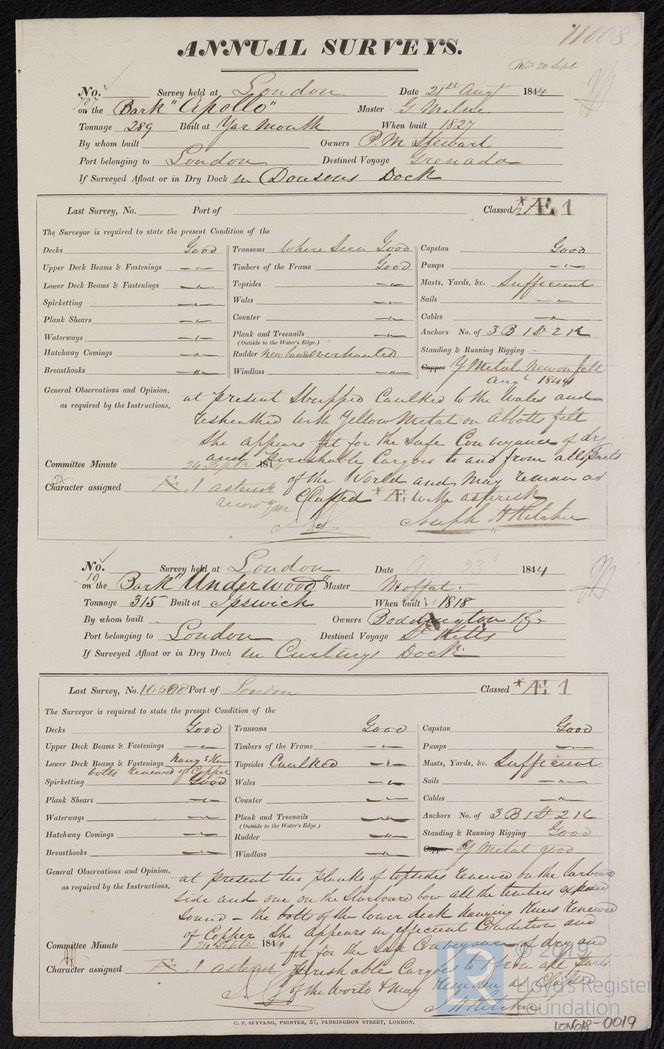 ANNUAL SURVEYS.
11008
Rec 20 Sept
No. Survey held at London Date 21st Augt 1844
on the Bark "Apollo" Master G Milne
Tonnage 289 Built at Yarmouth When built 1827
By whom built Owners P. M. Stewart
Port belonging to London Destined Voyage Grenada
If Surveyed Afloat or in Dry Dock in Dowsons Dock
Last Survey, No. Port of Classed * Æ 1
The Surveyor is required to state the present Condition of the
Decks Good Transoms Where Seen Good Capstan Good
Upper Deck Beams & Fastenings Timbers of the Frame Good Pumps
Lower Deck Beams & Fastenings Topsides Masts, Yards, &c. Sufficient
Spirketting Wales Sails
Plank Shears Counter Cables
Waterways Plank and Treenails Anchors No. of 3 B 1 St 2 K
(Outside to the Water's Edge.)
Hatchway Comings Rudder overhauled Standing & Running Rigging
Breasthooks Windlass Copper Y Metal New on felt
Augt 1844
General Observations and Opinion, at present Stripped Caulked to the Wales and
as required by the Instructions, resheathed with Yellow Metal on Abbotts felt
She appears fit for the Safe Conveyance of dry
and perishable Cargoes to and from all Parts
Committee Minute 24 Septr 184 of the World and May remain as
Character assigned Æ. 1 asterisk Classed * Æ 1 with asterisk
Joseph H Ritchie
No. Survey held at London Date 1844
on the Bark "Underwood" Master Moffat.
Tonnage 315 Built at Ipswich When built 1818
By whom built Owners Boddington & Co
Port belonging to London Destined Voyage St Kitts
If Surveyed Afloat or in Dry Dock in Curlings Dock
Last Survey, No. 10698 Port of London Classed * Æ 1
The Surveyor is required to state the present Condition of the
Decks Good Transoms Good Capstan Good
Upper Deck Beams & Fastenings Timbers of the Frame Pumps
Lower Deck Beams & Fastenings Hang'g Knee Topsides Caulked Masts, Yards, &c. Sufficient
bolts renewed of Copper
Spirketting Good Wales Sails
Plank Shears Counter Cables
Waterways Plank and Treenails Anchors No. of 3 B 1 St 2 K
(Outside to the Water's Edge.)
Hatchway Comings Rudder Standing & Running Rigging Good
Breasthooks Windlass Copper Y Metal good
General Observations and Opinion, at present two planks of topsides renewed on the larboard
as required by the Instructions, side and one on the Starboard bow all the timbers exposed
Sound – the bolts of the lower deck Hanging Knees renewed
of Copper She appears in efficient Condition and
Committee Minute 24 Septr 184 fit for the Safe Conveyance of dry and
Character assigned Æ. 1 asterisk perishable Cargoes to & from all Parts
of the World & May remain as Classed
J H Ritchie
C. F. SEYFANG, PRINTER, 57, FARRINGDON STREET, LONDON.
© 2019
Lloyd's Register
Foundation
LON018-0019